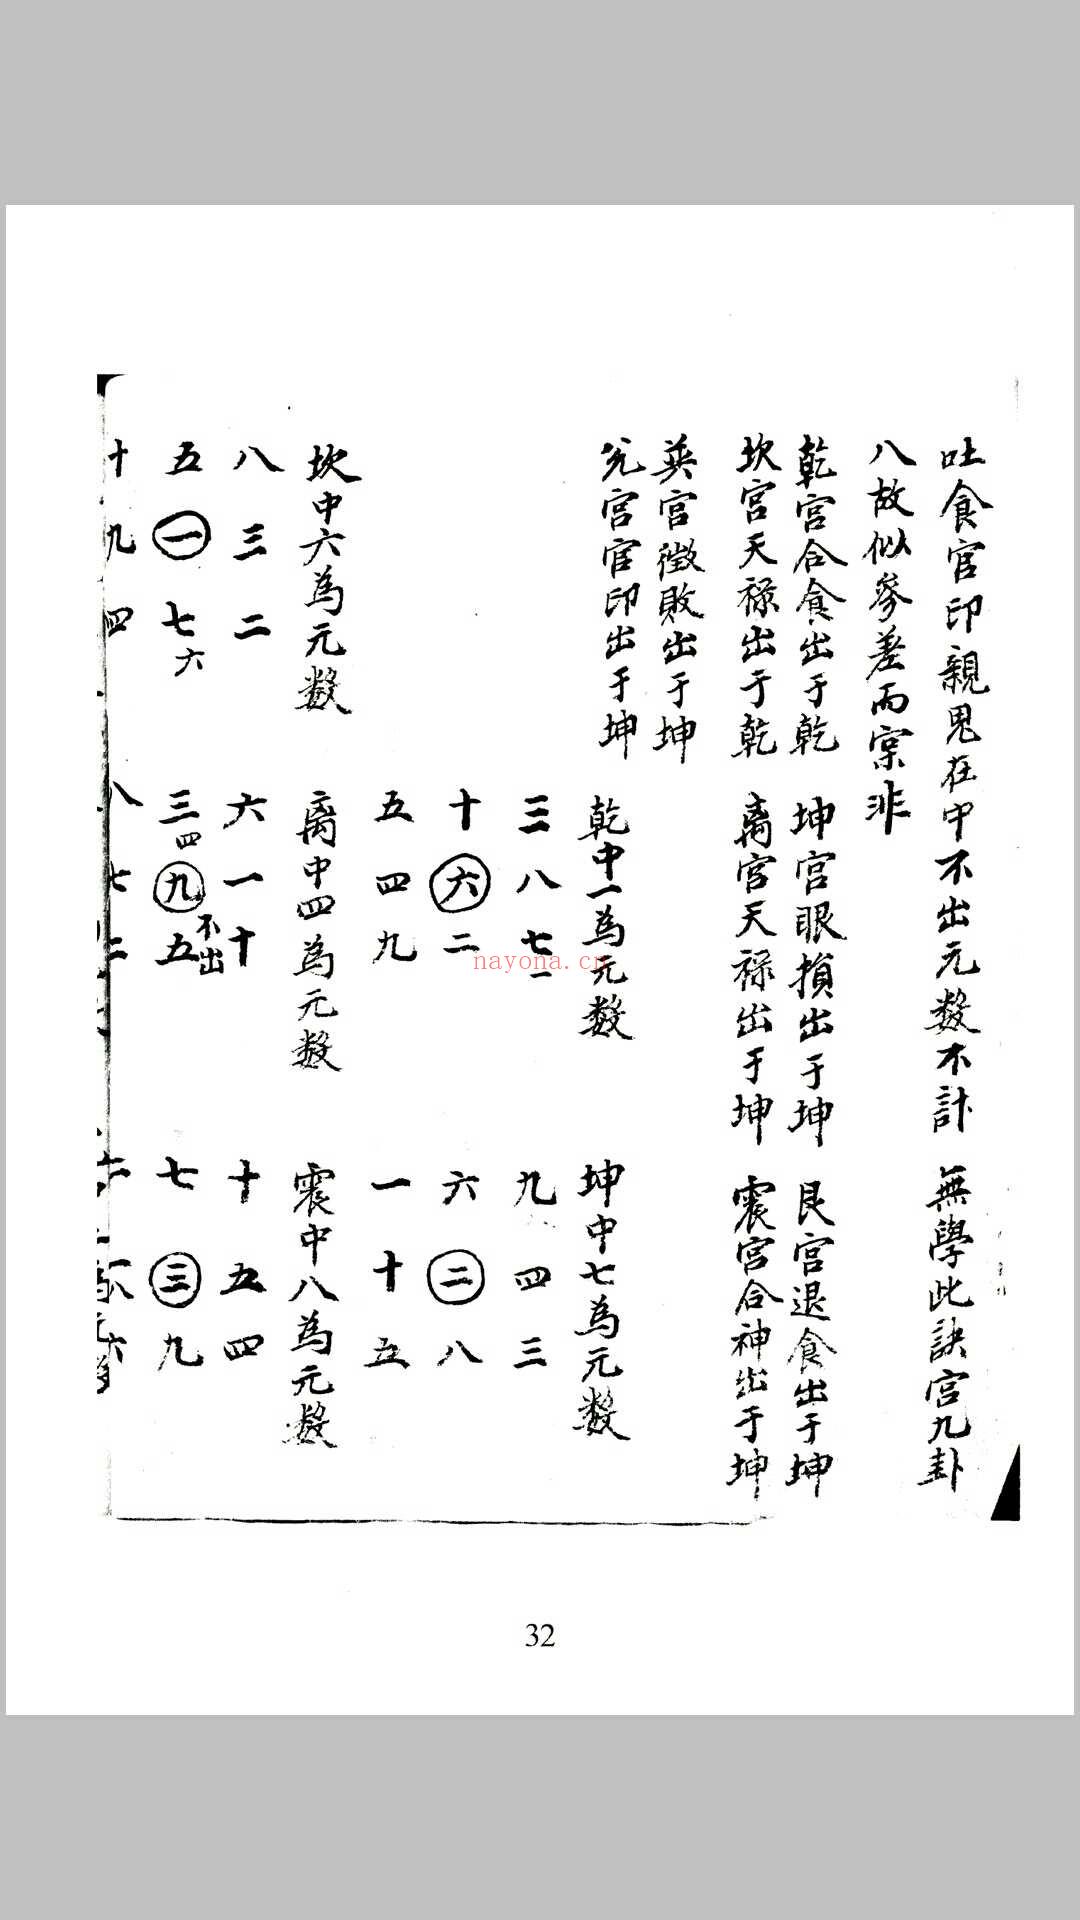 吐食官印親鬼在中不出元数不計 無學此訣宮九卦
八故似參差而宲非
乾宮合食出于乾 坤宮眼損出于坤 艮宮退食出于坤
坎宮天禄出于乾 离宮天禄出于坤 震宮合神出于坤
宮徵敗出于坤
兊宮官印出于坤
乾中一為元数
三 八 七 一
十 六 二
五 四 九
坤中七為元数
九 四 三
六 二 八
一 十 五
坎中六為元数
八 三 二
五 一 七 六
十 九 四
离中四為元数
六 一 十
三 四 九 五 不出
八 七 二
震中八為元数
十 五 四
七 三 九
nayona.cn
32